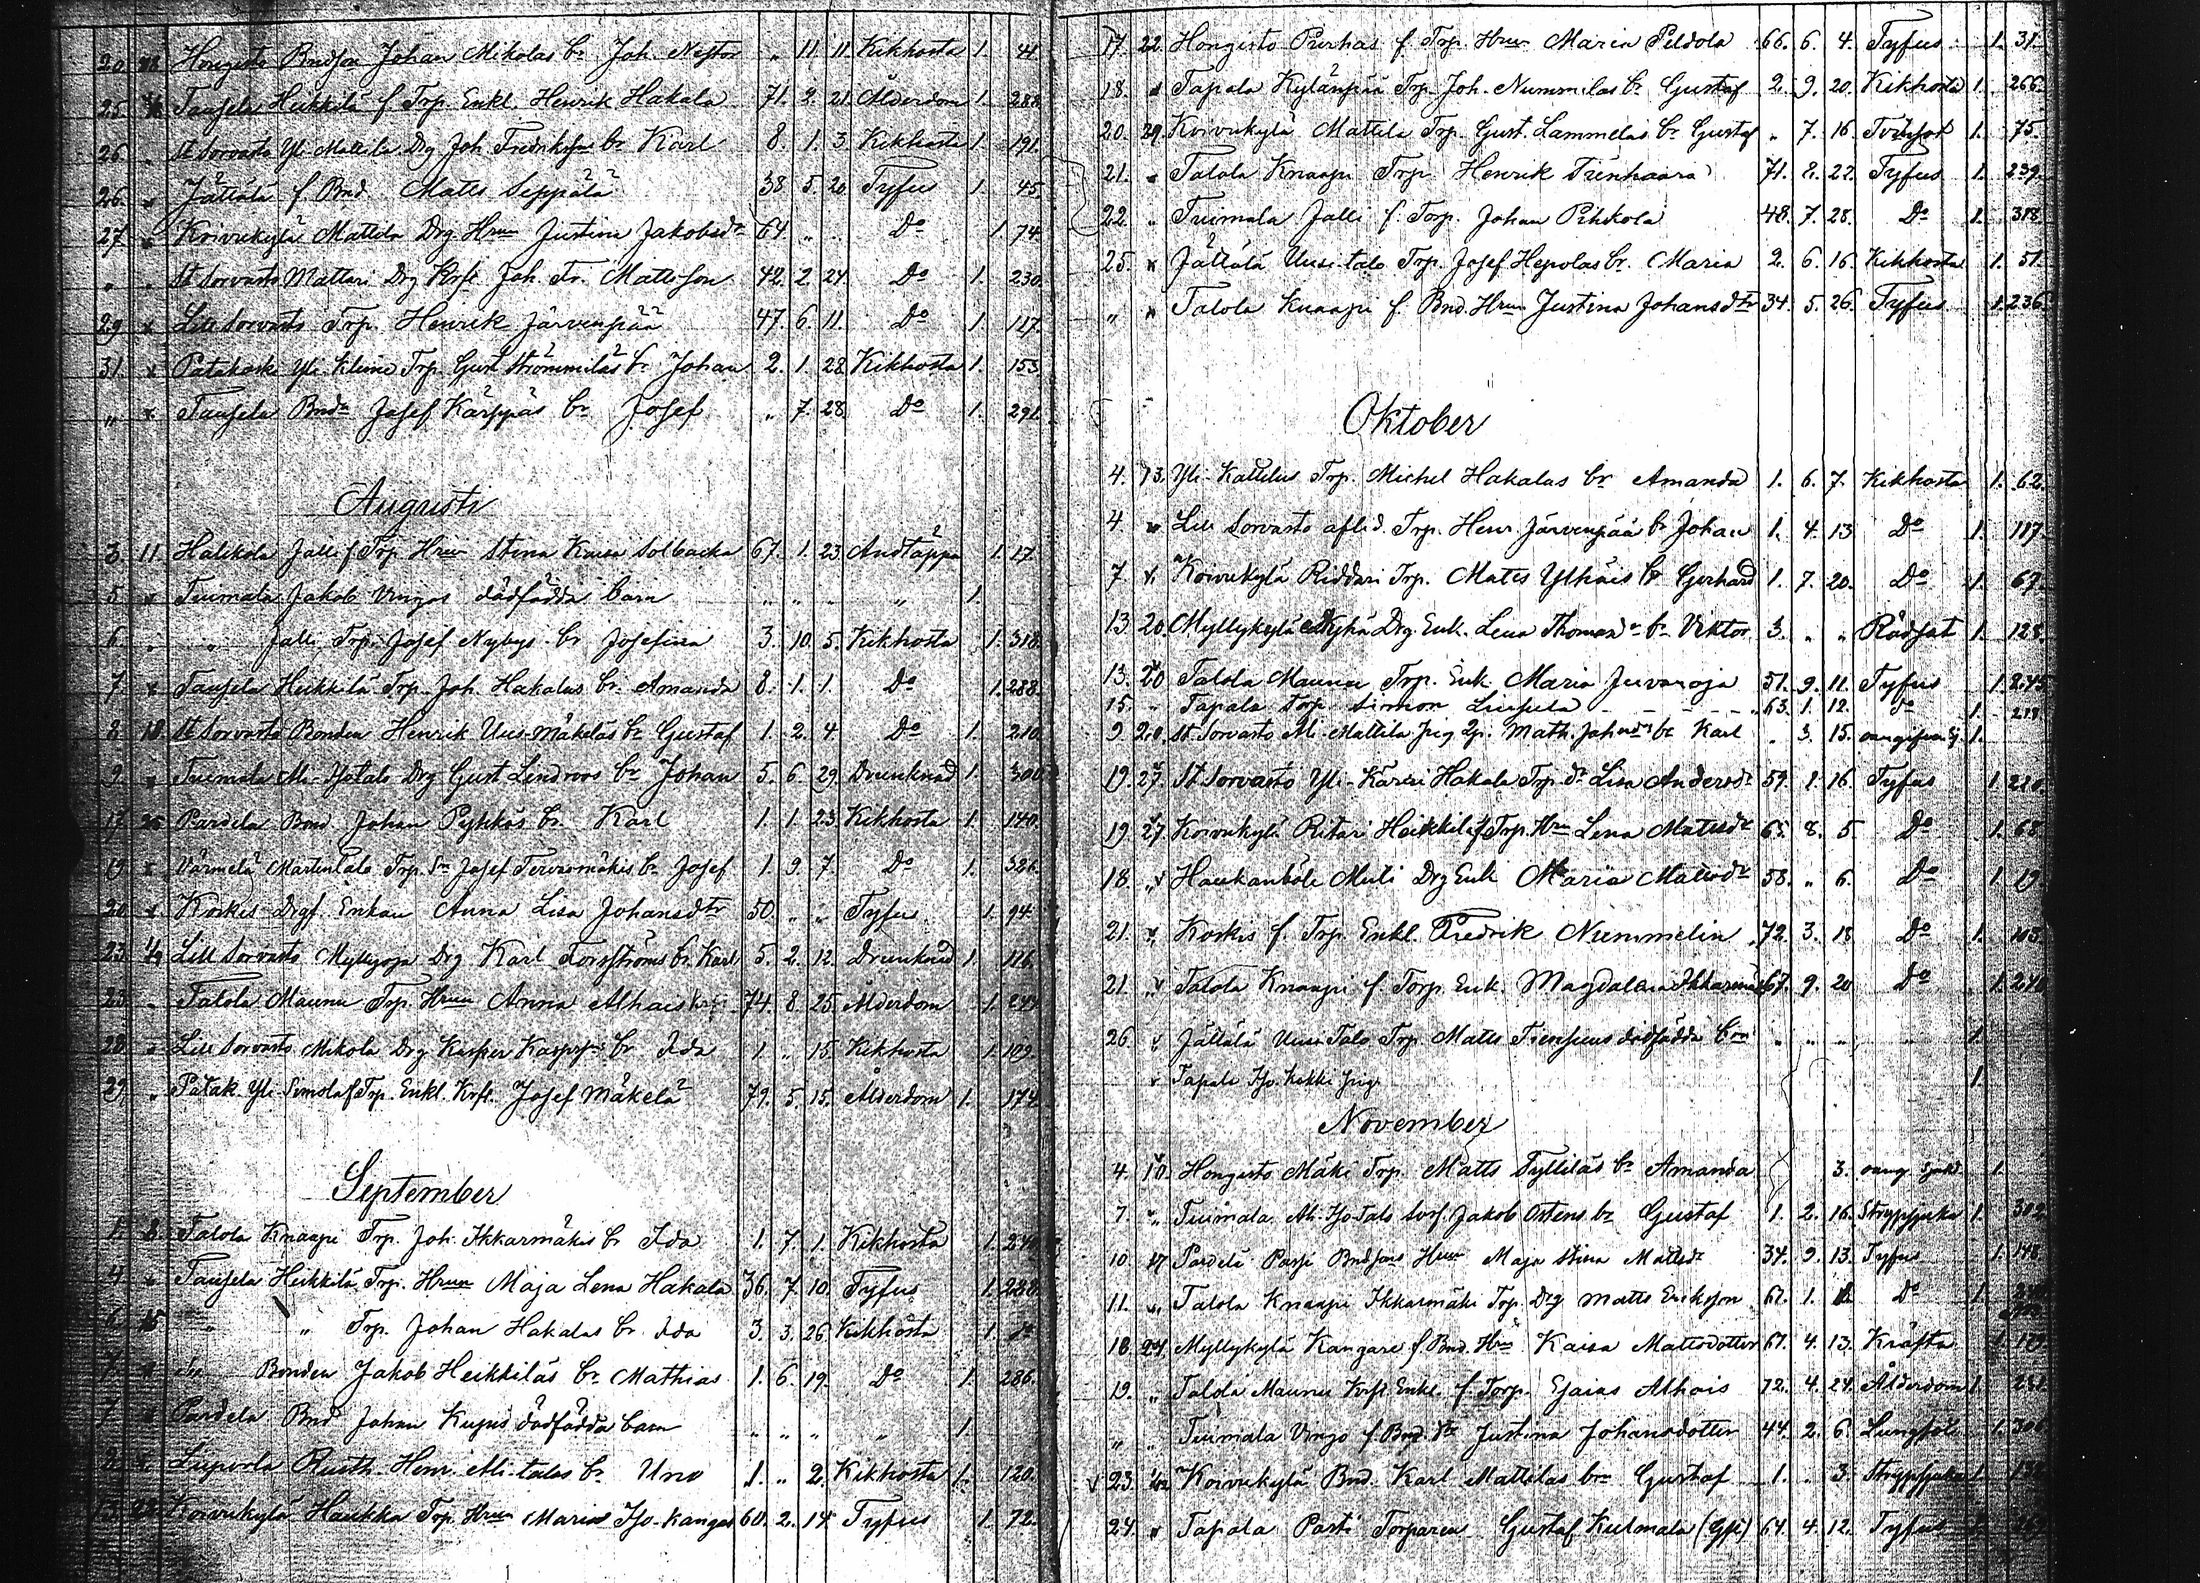 20. 28. Hongisto Bndson Johan Mikolas br Joh. Nestor " 11. 11. Kikhosta 1. 41.
25. Taufela Heikkilä f. Trp. Enkl. Henrik Hakala 71. 2. 21. Ålderdom 1. 288.
26. " St Sorvasto Yli Mattila Drg Joh. Fredrikson br Karl 8. 1. 3. Kikhosta 1. 191.
26. " Jättälä f. Bnd. Matts Seppälä 38. 5. 20. Tyfus 1. 45.
27. " Koivukylä Mattila Drg Hru Justina Jakobsdr 64. " " Do 1. 74.
" " St Sorvasto Mattari Drg Krft. Joh. Fr. Mattsson 42. 2. 24. Do 1. 230.
29. " Lill Sorvasto Trp. Henrik Järvenpää 47. 6. 11. Do 1. 117.
31. " Patakoski Yli Kleimo Trp. Gust. Strömmiläs br Johan 2. 1. 28. Kikhosta 1. 153.
" " Taufela Bndn Josef Kärppäs br Josef " 7. 28. Do 1. 291.
Augusti
3. 11. Halikola Jalli f. Trp. Hru Stina Kaisa Solbacka 67. 1. 23. Andtäppa 1. 17.
5. " Tuimala Jakob Vingos dödfödda barn " " " " 1.
6. " " Jalli Trp. Josef Nybys br Josefina 3. 10. 5. Kikhosta 1. 318.
7. " Taufela Heikkilä Trp. Joh. Hakalas br Amanda 8. 1. 1. Do 1. 288.
8. 18. St Sorvasto Bonden Henrik Uus-Mäkeläs br Gustaf 1. 2. 4. Do 1. 210.
9. " Tuimala Ali-Isotalo Drg Gust Lindroos br Johan 5. 6. 29. Drunknad 1. 300.
17. 25. Pardela Bond. Johan Pyhkös br Karl 1. 1. 23. Kikhosta 1. 140.
19. " Värmelä Martintalo Trp. Sn Josef Tervamäkis br Josef 1. 9. 7. Do 1. 326.
20. " Koskis Drgf. Enkan Anna Lisa Johansdtr 50. " " Tyfus 1. 94.
23. 1/9 Lill Sorvasto Myllyoja Drg Karl Forsströms br Karl 5. 2. 12. Drunknad 1. 116.
23. " Talola Maunu Trp. Hru Anna Alhais 74. 8. 25. Ålderdom 1. 249.
28. " Lill Sorvasto Mikola Drg Kasper Kaspers br Ida 1. " 15. Kikhosta 1. 109.
29. " Patak. Yli Simola f. Trp. Enkl. Krft. Josef Mäkelä 79. 5. 15. Ålderdom 1. 174.
September
1. 8. Talola Knaapi Trp. Joh. Ikkarmäkis br Ida 1. 7. 1. Kikhosta 1. 240.
4. " Taufela Heikkilä Trp. Hru Maja Lena Hakala 36. 7. 10. Tyfus 1. 288.
6. 15. " " Trp. Johan Hakalas br Ida 3. 3. 26. Kikhosta 1. Do
7. " " Bonden Jakob Heikkiläs br Mathias 1. 6. 19. Do 1. 286.
7. " Pardela Bnd Johan Kupis dödfödda barn " " " " 1.
8. " Luperla Rusth. Henr. Ali-talos br Uno 1. " 2. Kikhosta 1. 120.
13. 22. Koivukylä Haukka Trp. Hru Maria Iso-Kangas 60. 2. 14. Tyfus 1. 72.
17. 22. Hongisto Purhas f. Trp. Hru Maria Peldola 66. 6. 4. Tyfus 1. 31.
18. " Tapala Kylänpää Trp. Joh. Nummilas br Gustaf 2. 9. 20. Kikhosta 1. 266.
20. 29. Koivukylä Mattila Trp. Gust. Lammelas br Gustaf " 7. 16. 1. 75.
21. " Talola Knaapi Trp. Henrik Tienhaara 71. 8. 22. Tyfus 1. 239.
22. " Tuimala Jalli f. Torp. Johan Pihkola 48. 7. 28. Do 1. 318.
25. " Jättälä Uusi-talo Trp. Josef Hepolas br. Maria 2. 6. 16. Kikhosta 1. 51.
" " Talola Knaapi f. Bnd. Hru Justina Johansdtr 34. 5. 26. Tyfus 1. 236.
Oktober
4. 13. Yli-Kattelus Trp. Michel Hakalas br Amanda 1. 6. 7. Kikhosta 1. 62.
4. " Lill Sorvasto aflid. Trp. Henr. Järvenpää br Johan 1. 4. 13. Do 1. 117.
7. " Koivukylä Riddari Trp. Matts Ylhäis br Gerhard 1. 7. 20. Do 1. 67.
13. 20. Myllykylä Drg. Enk. Lena Thomasdr br Viktor 3. " " Rödsot 1. 128.
13. 20. Talola Maunu Trp. Enk. Maria Juvanoja 51. 9. 11. Tyfus 1. 245.
15. " Tapala Torp. Simon Liipola 63. 1. 12. Do 1.
9. 20. St Sorvasto Ali-Mattila Math. Johnsdr br Karl " 3. 15. 1.
19. 27. St Sorvasto Yli-Karri Hakala Trp. Lisa Andersdr 59. 1. 16. Tyfus 1. 220.
19. 27. Koivukylä Ritari Heikkilä f. Trp. Hru Lena Mattsdr 65. 8. 5. Do 1. 68.
18. " Haukanböle Muti Drg Enk Maria Mattsdr 58. " 6. Do 1. 19.
21. " Koskis f. Trp. Enkl. Fredrik Nummelin 72. 3. 18. Do 1. 105.
21. " Talola Knaapi f. Torp. Enk. Magdalena Ikkarmäki 67. 9. 20. Do 1. 240.
26. " Jättälä Uusi Talo Trp. Matts Tienhuus dödfödda brn " " " " 1.
" Tapala Iso Kekki pig. 1.
November
4. 10. Hongisto Mäki Trp. Matts Tyttiläs br Amanda 3. oang. sjukd. 1.
7. " Tuimala Ali-Iso-Talo Jakob Ostens br Gustaf 1. 2. 16. Strypsjuka 1. 302.
10. 17. Pardela Bndsons Hru Maja Stina Mattsdr 34. 9. 13. Tyfus 1. 148.
11. " Talola Knaapi Ikkarmäki Trp. Drg Matts Eriksson 61. 1. Do 1.
18. 24. Myllykylä Kangare f. Bnd. Hru Kaisa Mattsdotter 61. 4. 13. Kräfta 1.
19. " Talola Maunu Krft. Enkl. f. Torp. Esaias Alhais 72. 4. 24. Ålderdom 1. 251.
" " Tuimala Vingo f. Bnd. Justina Johansdotter 44. 2. 6. Lungsot 1.
23. Koivukylä Bnd. Karl Mattilas brn Gustaf 1. " 3. Strypsjuka 1.
24. " Tapala Pasti Torparen Gustaf Kulmala 64. 4. 12. Tyfus